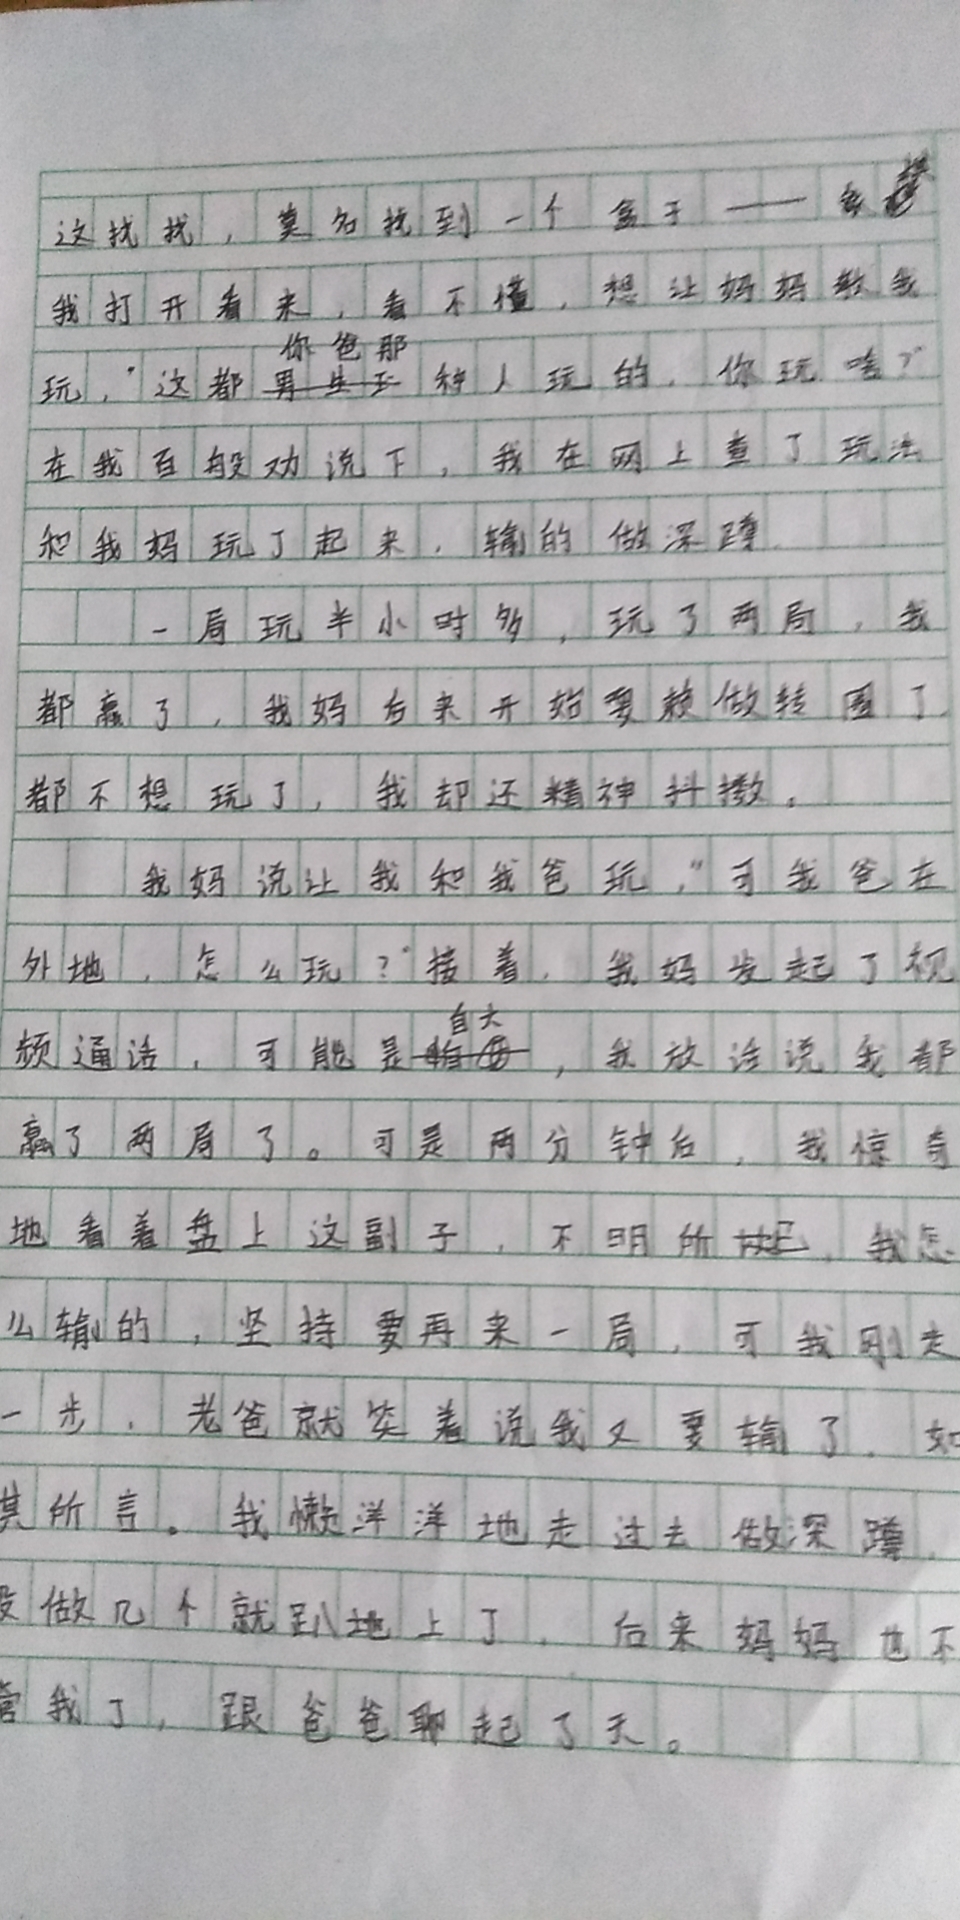 这找找，莫名找到一个盒子——象棋
我打开看来，看不懂，想让妈妈教我
玩，“这都你爸那种人玩的，你玩啥？”
在我百般劝说下，我在网上查了玩法
和我妈玩了起来，输的做深蹲
一局玩半小时多，玩了两局，我
都赢了，我妈后来开始耍赖做转圈了
都不想玩了，我却还精神抖擞。
我妈说让我和我爸玩，“可我爸在
外地，怎么玩？”接着，我妈发起了视
频通话，可能是自大，我放话说我都
赢了两局了。可是两分钟后，我惊奇
地看着盘上这副子，不明所，我怎
么输的，坚持要再来一局，可我刚走
一步，老爸就笑着说我又要输了，如
其所言。我懒洋洋地走过去做深蹲，
没做几个就趴地上了，后来妈妈也不
管我了，跟爸爸聊起了天。